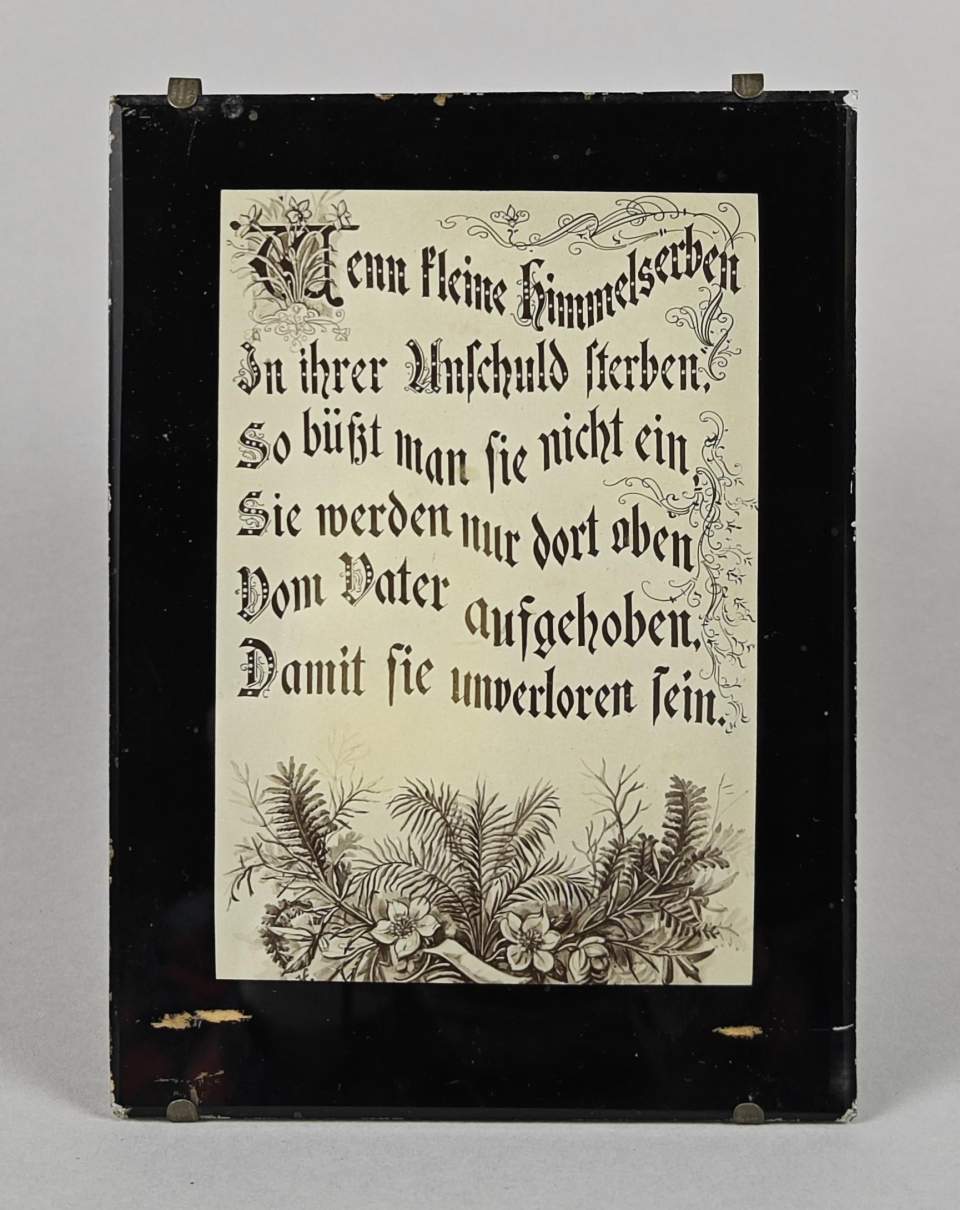 Wenn kleine Himmelserben
In ihrer Unschuld sterben,
So büßt man sie nicht ein
Sie werden nur dort oben
Vom Vater aufgehoben,
Damit sie unverloren sein.